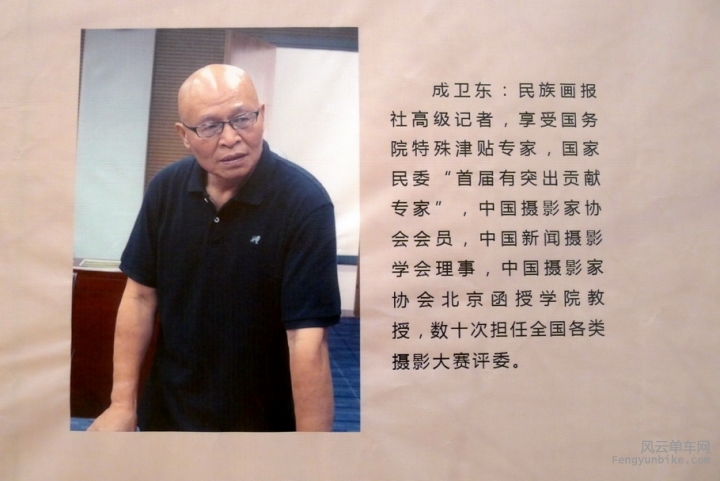 成卫东：民族画报
社高级记者，享受国务
院特殊津贴专家，国家
民委“首届有突出贡献
专家”，中国摄影家协
会会员，中国新闻摄影
学会理事，中国摄影家
协会北京函授学院教
授，数十次担任全国各类
摄影大赛评委。
风云单车网
Fengyunbike.com